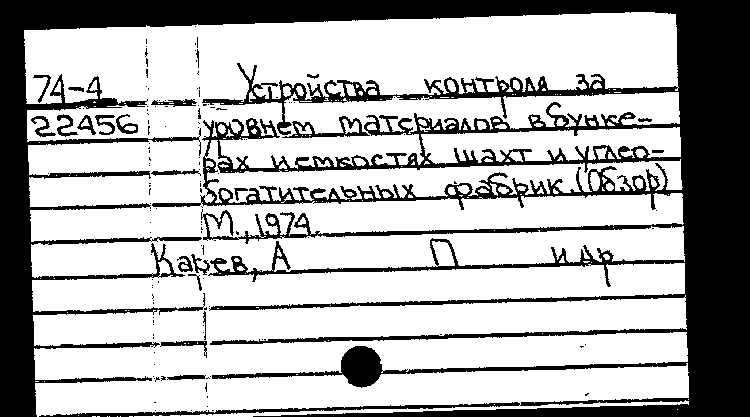 74-4 Устройства контроля за
22456 уровнем материалов в бунке-
рах и емкостях шахт и углео-
богатительных фабрик. (Обзор)
М., 1974.
Карев, А П и др.